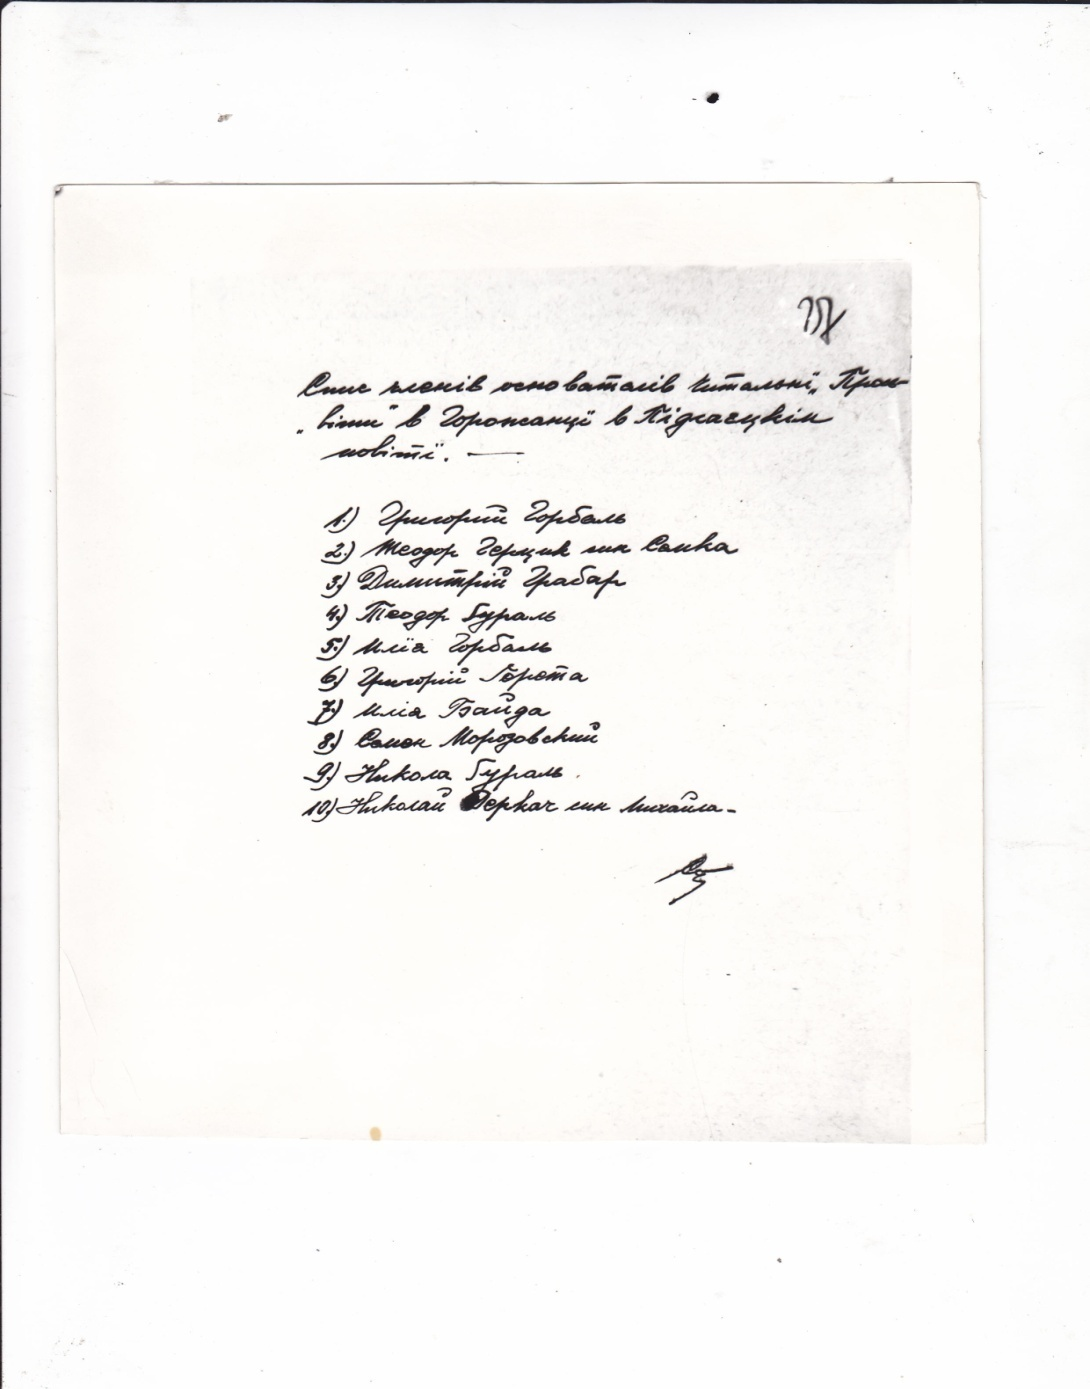 Спис членів основателів Читальнї „Прос-
„віти" в Горожанцї в Підгаєцкім
повітї. —
1.) Григорий Горбаль
2.) Теодор Герцик син Сенька
3.) Димитрій Грабар
4.) Теодор Бураль
5.) Илїя Горбаль
6.) Григорій
7.) Илія Байда
8.) Семен Морозовский
9.) Никола Бураль.
10.) Николай Деркач син Михайла –